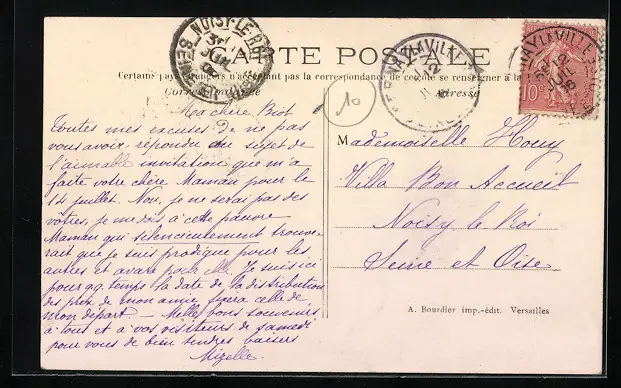 CARTE POSTALE
Certains pays étrangers n'acceptent pas la correspondance de ce côté se renseigner à la
Correspondance
Adresse
NOISY-LE-ROI
10
Ma chère Biot
Toutes mes excuses de ne pas
vous avoir répondu au sujet de
l'aimable invitation que m'a
faite votre chère Maman pour le
14 juillet. Non, je ne serai pas des
vôtres, je me dis à cette pauvre
Maman qui silencieusement trouve-
rait que je suis prodigue pour les
autres et avare pour elle. Je suis ici
pour qq. temps la date de la distribution
des prix de mon amie, fixera celle de
mon départ. — Meilleurs bons souvenirs
à tout et à vos visiteurs de samedi
pour vous de bien tendres baisers
Mizelle.
Mademoiselle Houy
Villa Bon Accueil
Noisy le Roi
Seine et Oise
A. Bourdier imp.-édit. Versailles